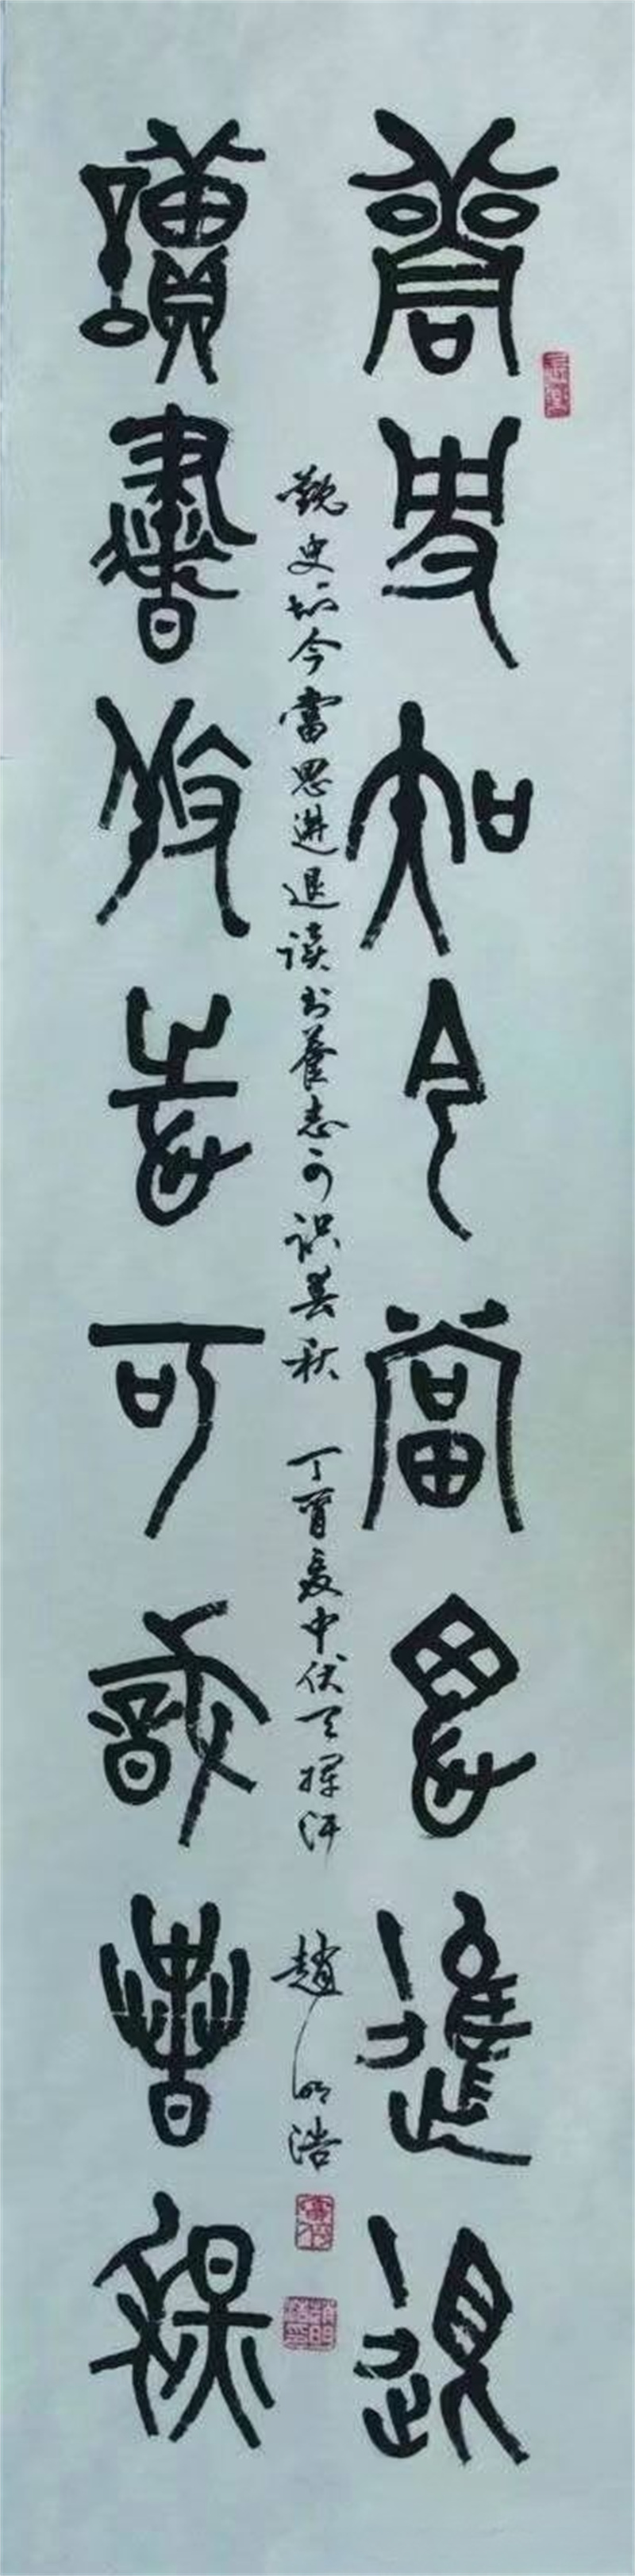 觀史知今當思進退
讀書養志可識春秋
觀史知今當思進退读书養志可识春秋 丁酉夏中伏天揮汗 趙明浩